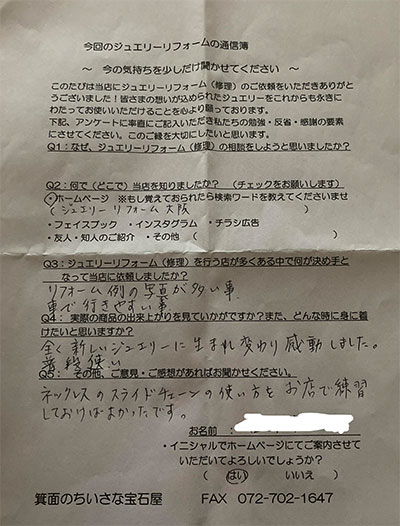 今回のジュエリーリフォームの通信簿
～ 今の気持ちを少しだけ聞かせてください ～
このたびは当店にジュエリーリフォーム（修理）のご依頼をいただきありが
とうございました！皆さまの想いが込められたジュエリーをこれからも永きに
わたってお使いいただけることを心より願っております。
下記、アンケートに率直にご記入いただき私たちの勉強・反省・感謝の要素
にさせてください。このご縁を大切にしたいと思います。
Q1：なぜ、ジュエリーリフォーム（修理）の相談をしようと思いましたか？
Q2：何で（どこで）当店を知りましたか？ （チェックをお願いします）
・ホームページ ※もし覚えておられたら検索ワードを教えてくださいませ
（ジュエリーリフォーム大阪 ）
・フェイスブック ・インスタグラム ・チラシ広告
・友人・知人のご紹介 ・その他（ ）
Q3：ジュエリーリフォーム（修理）を行う店が多くある中で何が決め手と
なって当店に依頼しましたか？
リフォーム例の写真が多い事
車で行きやすい事
Q4： 実際の商品の出来上がりを見ていかがですか？また、どんな時に身に着
けたいと思いますか？
全く新しいジュエリーに生まれ変わり感動しました。
普段使い
Q5： その他、ご意見・ご感想があればお聞かせください。
ネックレスのスライドチェーンの使い方をお店で練習
しておけばよかったです。
お名前：
・イニシャルでホームページにてご案内させて
いただいてよろしいでしょうか？
（ はい いいえ ）
箕面のちいさな宝石屋 FAX 072-702-1647